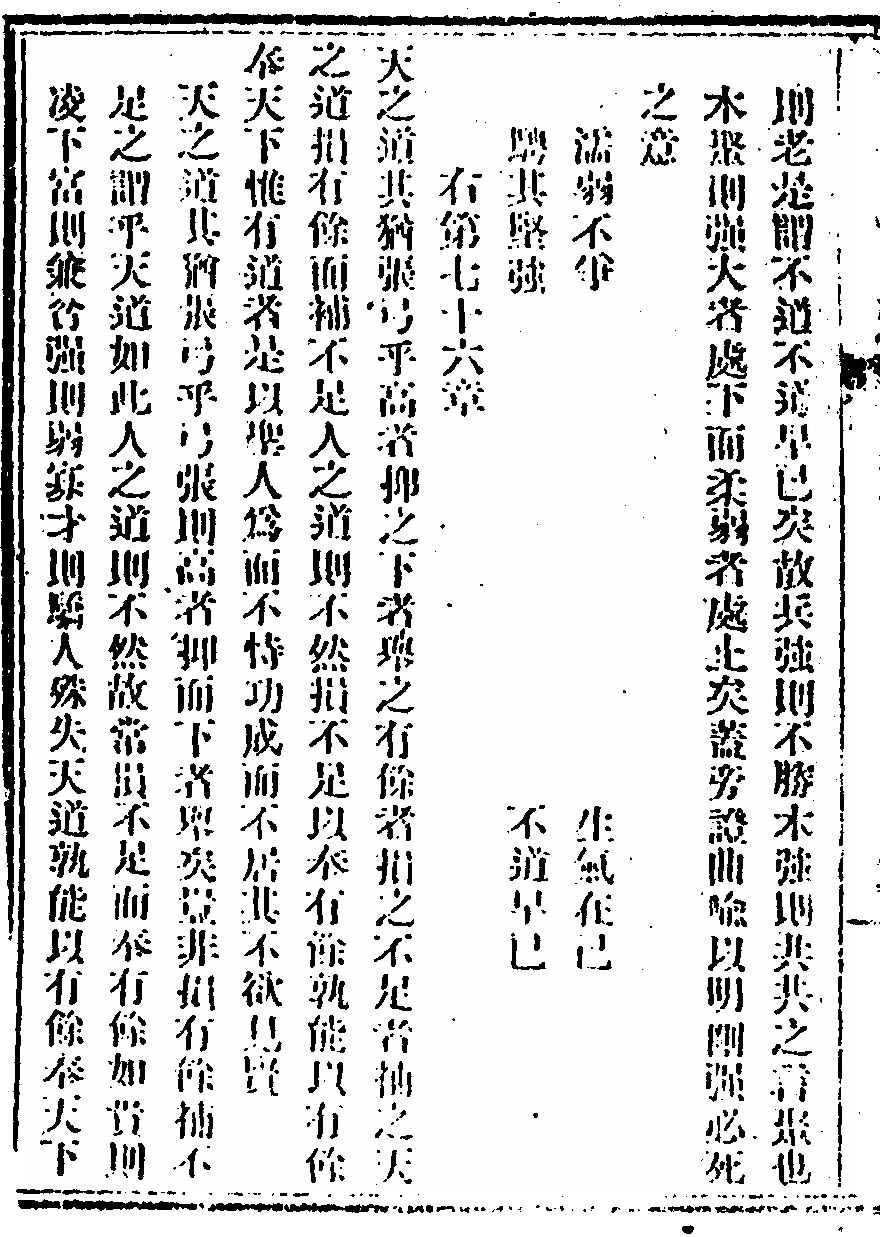 則老是謂不道不道早已矣故兵強則不勝木強則共共之言聚也
木聚則强大者處下而柔弱者處上矣葢旁證曲喻以明剛强必死
之意
濡弱不爭　生氣在己
騁其堅強　不道早已
右第七十六章
天之道其猶張弓乎高者抑之下者舉之有餘者損之不足者補之天
之道損有餘而補不足人之道則不然損不足以奉有餘孰能以有餘
奉天下惟有道者是以聖人爲而不恃功成而不居其不欲見賢
天之道其猶張弓乎弓張則高者抑而下者舉矣豈非損有餘補不
足之謂乎天道如此人之道則不然故常損不足而奉有餘如貴則
凌下富則兼貧强則弱寡才則驕人殊失天道孰能以有餘奉天下